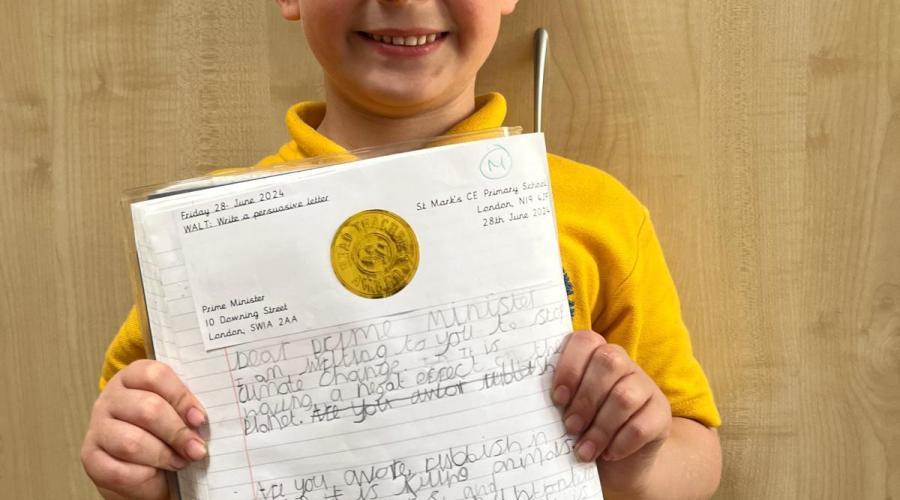 M
Friday 28. June 2024
WALT: Write a persuasive letter
St Mark's CE Primary School
London, N19 4JF
28th June 2024
HEAD TEACHER'S
AWARD
Prime Minister
10 Downing Street
London, SW1A 2AA
Dear prime minister
I am writing to you to stop
climate change. It is
having a negat effect
planet. Are you awor rubbish
Are you awore rubbish
it is killing animals
and